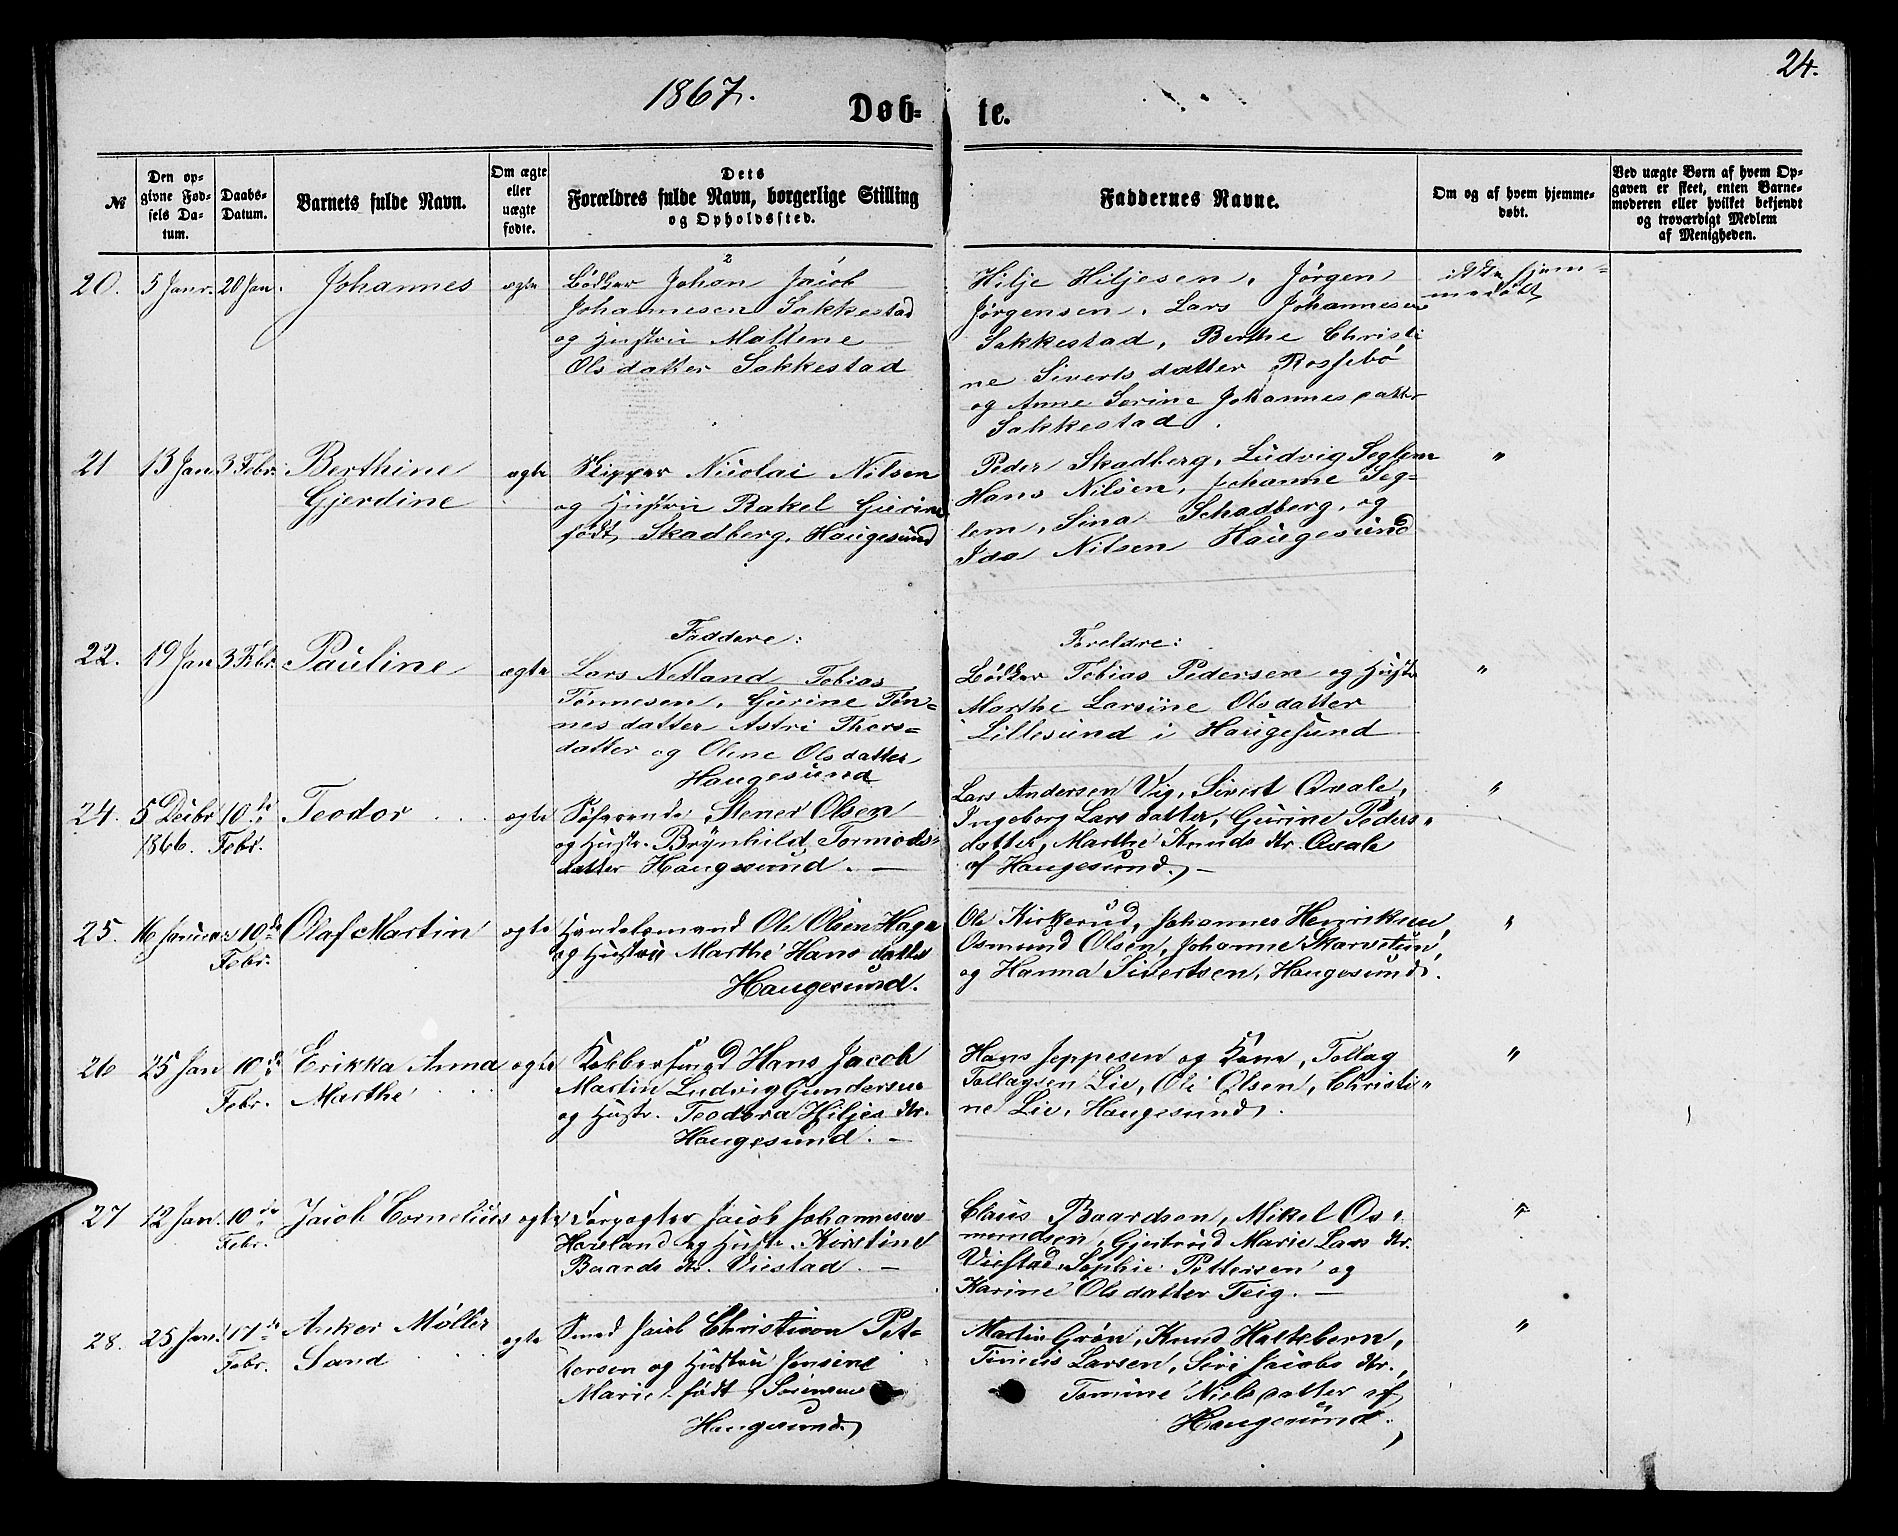 24.
1867.
Døb- te.
№
Den op-
givne Fød-
sels Da-
tum.
Daabs-
Datum.
Barnets fulde Navn.
Om ægte
eller
uægte
fødte.
Dets
Forældres fulde Navn, borgerlige Stilling
og Opholdssted.
Faddernes Navne.
Om og af hvem hjemme-
døbt.
Ved uægte Børn af hvem Op-
gaven er skeet, enten Barne-
moderen eller hvilket bekjendt
og troværdigt Medlem
af Menigheden.
20. 5 Janr. 20 Jan. Johannes ægte
Bødker Johan Jacob
Johannesen Sakkestad
og Hustru Maltene
Olsdatter Sakkestad
Hilje Hiljesen, Jörgen
Jørgensen, Lars Johannesen
Sakkestad, Berthe Christi
ne Siverts datter Rossebö
og Anne Serine Johannesdatter
Sakkestad.
ikke hjem-
medøbt
21 13 Jan 3 Febr. Berthine
Gjerdine
ægte
Skipper Nicolai Nilsen
og Hustru Rakel Gurine
født Skadberg, Haugesund
Peder Skadberg, Ludvig Seglem
Hans Nilsen, Johanne Seg-
lem, Sina Schadberg, og
Ida Nilsen Haugesund
"
22. 19 Jan 3 Febr. Pauline ægte
Faddere:
Lars Netland Tobias
Tönnesen, Gurine Tøn-
nesdatter Astri Thors-
datter og Oline Olsdatter
Haugesund
Foreldre:
Bödker Tobias Pedersen og Hustr.
Marthe Larsine Olsdatter
Lillesund i Haugesund
"
24. 5 Decbr 1866. 10de Febr. Teodor ægte
Søfarende Stener Olsen
og Hustr. Brynhild Tormods-
datter Haugesund. —
Lars Andersen Vig, Sivert Qvale,
Ingeborg Lars datter, Gurine Peders-
datter, Marthe Knuds dtr. Qvale
af Haugesund. —
"
25. 16 Januar 10de Febr. Olaf Martin ægte
Handelsmand Ole Olsen Haga
og Hustru Marthe Hans datter
Haugesund.
Ole Kirkerud, Johannes Henriksen,
Osmund Olsen, Johanne Skarvetun,
og Hanna Sivertsen, Haugesund.
"
26 25 Jan 10de Febr. Erikka Anna
Marthe
ægte
Kobbersmed Hans Jacob
Martin Ludvig Gundersen
og Hustr. Teodora Hiljes dtr.
Haugesund. —
Hans Jeppesen og Kone, Tollag
Tollagsen Lie, Ole Olsen, Christi-
ne Lie, Haugesund.
"
27 12 Jan. 10de Febr. Jacob Cornelius ægte
Forpagter Jacob Johannesen
Haveland og Hustr. Kirstine
Baards dtr. Viestad. —
Claus Baardsen, Mikel Os-
mundsen, Gjertrud Marie Lars dtr.
Viestad, Sophie Pettersen og
Karine Olsdatter Teig. —
"
28. 25 Jan. 17de Febr. Anker Møller
Sand
ægte
Smed Jacob Christian Pet-
tersen og Hustru Jensine
Marie født Sörensen
Haugesund.
Martin Grön, Knud
Larsen, Siri Jacobs dtr.,
Tomine Nielsdatter af
Haugesund.
"